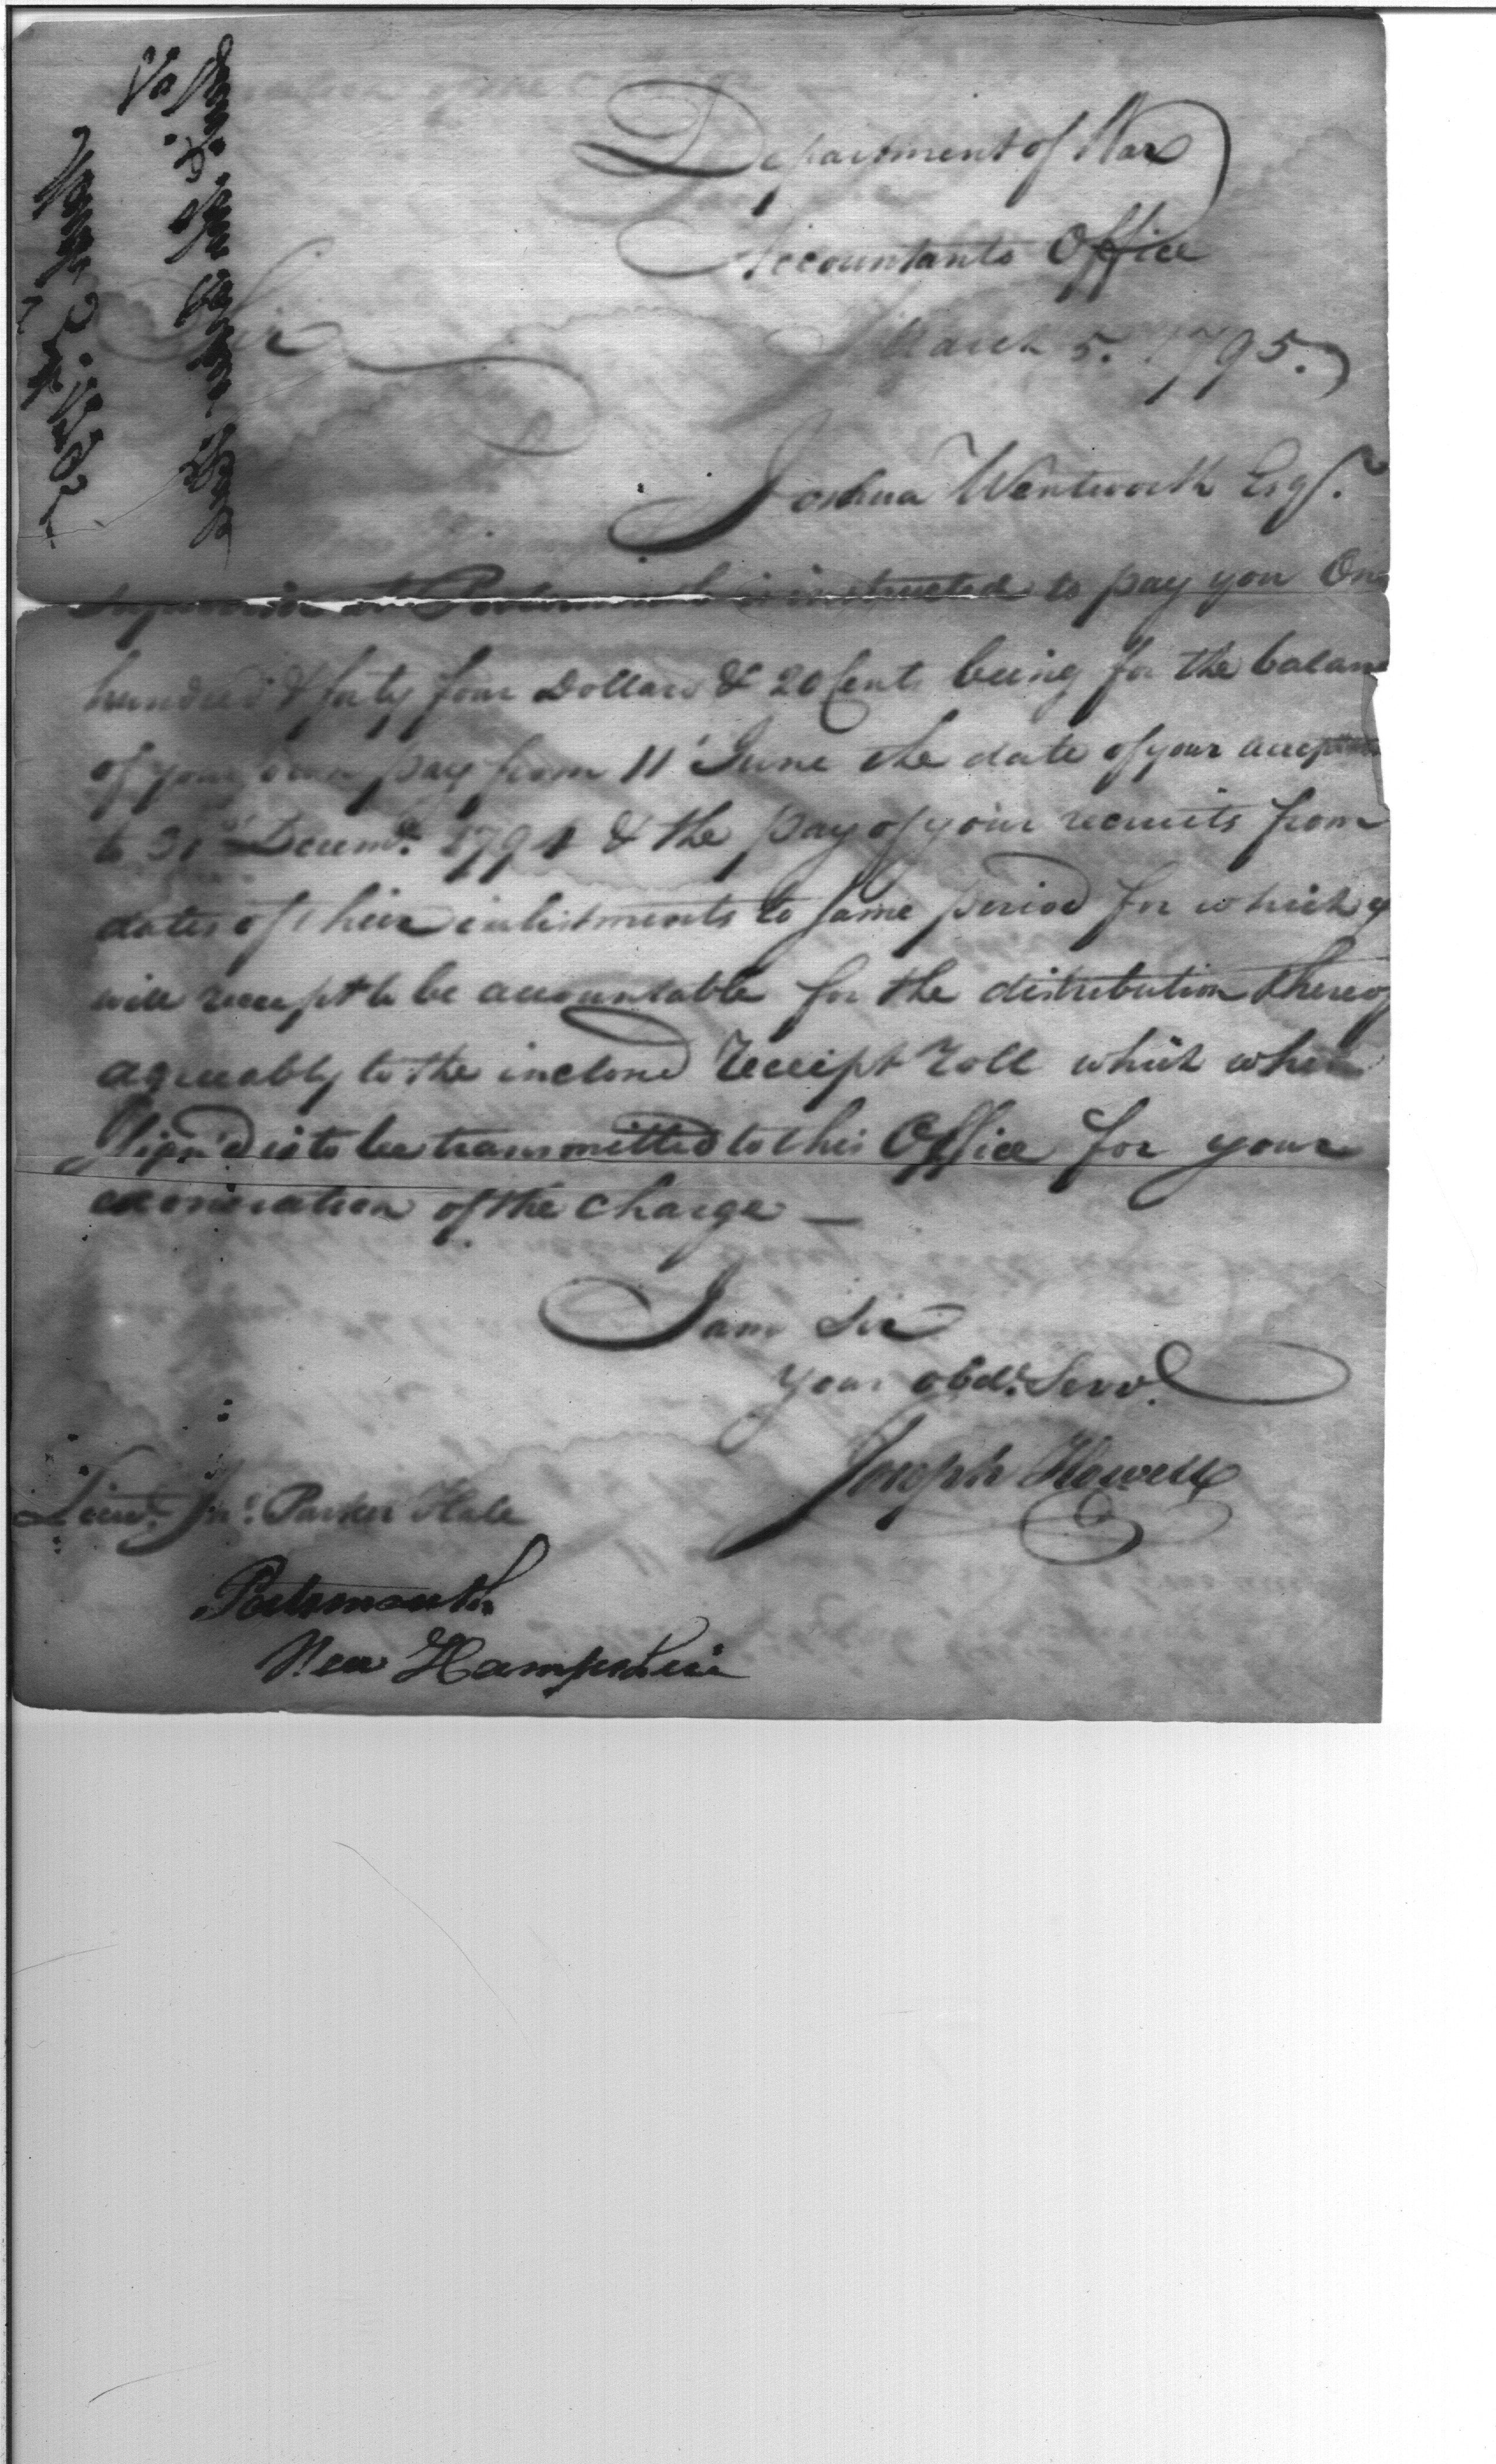 Department of War
Accountants Office
March 5. 1795.
Sir
Joshua Wentworth Esqr.
Supervisor at Portsmouth is instructed to pay you One
hundred & forty four Dollars & 20 Cents being for the balance
of your own pay from 11 June the date of your
to 31st Decemr. 1794 & the pay of your recruits from
dates of their enlistments to same period for which
will receipt to be accountable for the distribution thereof
agreeably to the inclosed receipt roll which when
Sign'd is to be transmitted to this Office for your
exoneration of the Charge —
I am Sir
Your obdt. Servt.
Joseph Howell
Lieut. Jno. Parker Hale
Portsmouth
New Hampshire